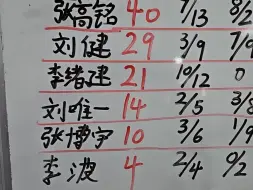 张高铭 40 7/13 8/2
刘健 29 3/9 7/9
李绪建 21 10/12 0
刘唯一 14 2/5 3/8
张博宇 10 3/6 1/9
李波 4 2/4 0/2